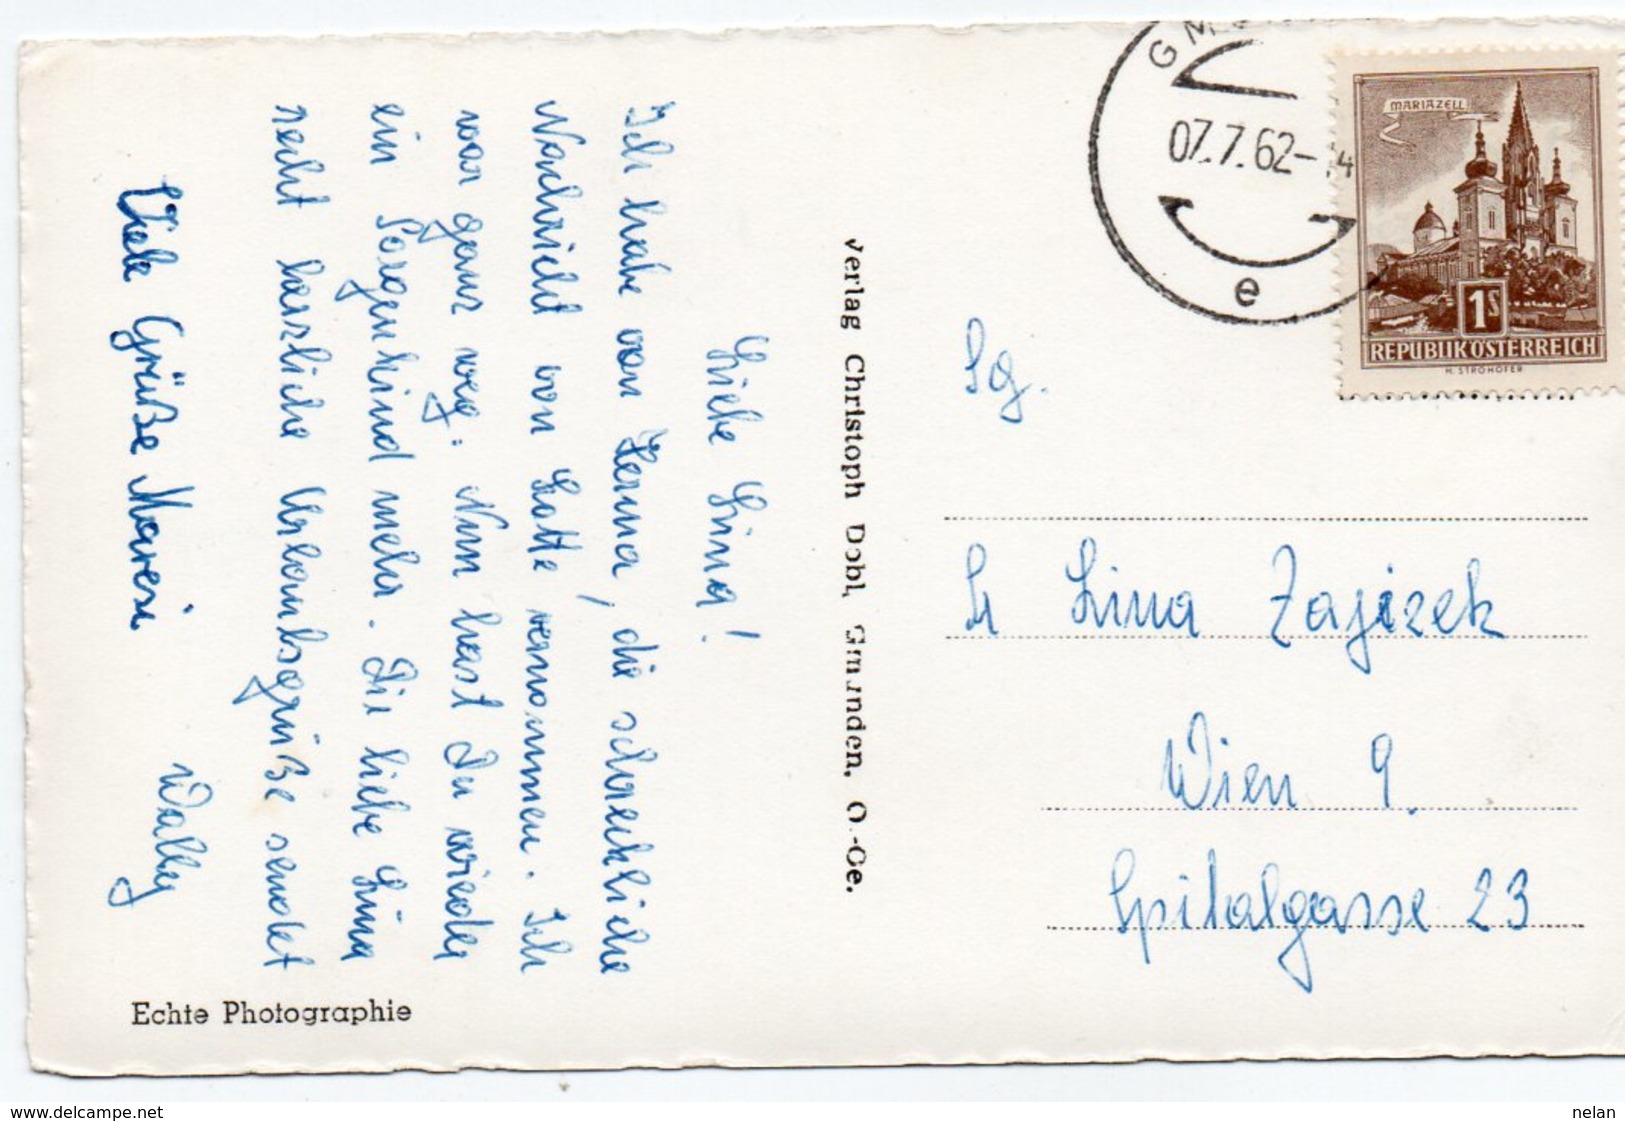 Liebe Lina!
Ich habe von Herma, die schreckliche
Nachricht von Lotte vernommen. Ich
war ganz weg. Nun hast Du wieder
ein Sorgenkind mehr. Dir liebe Lina
recht herzliche Urlaubsgrüße sendet
Wally
Viele Grüße Maresi
Echte Photographie
Verlag Christoph Dobl, Gmunden, O.-Oe.
07.7.62-14
e
MARIAZELL
1S
REPUBLIK ÖSTERREICH
H. STROHOFER
Sg.
Fr Lina Zajizek
Wien 9.
Spitalgasse 23
www.delcampe.net
nelan